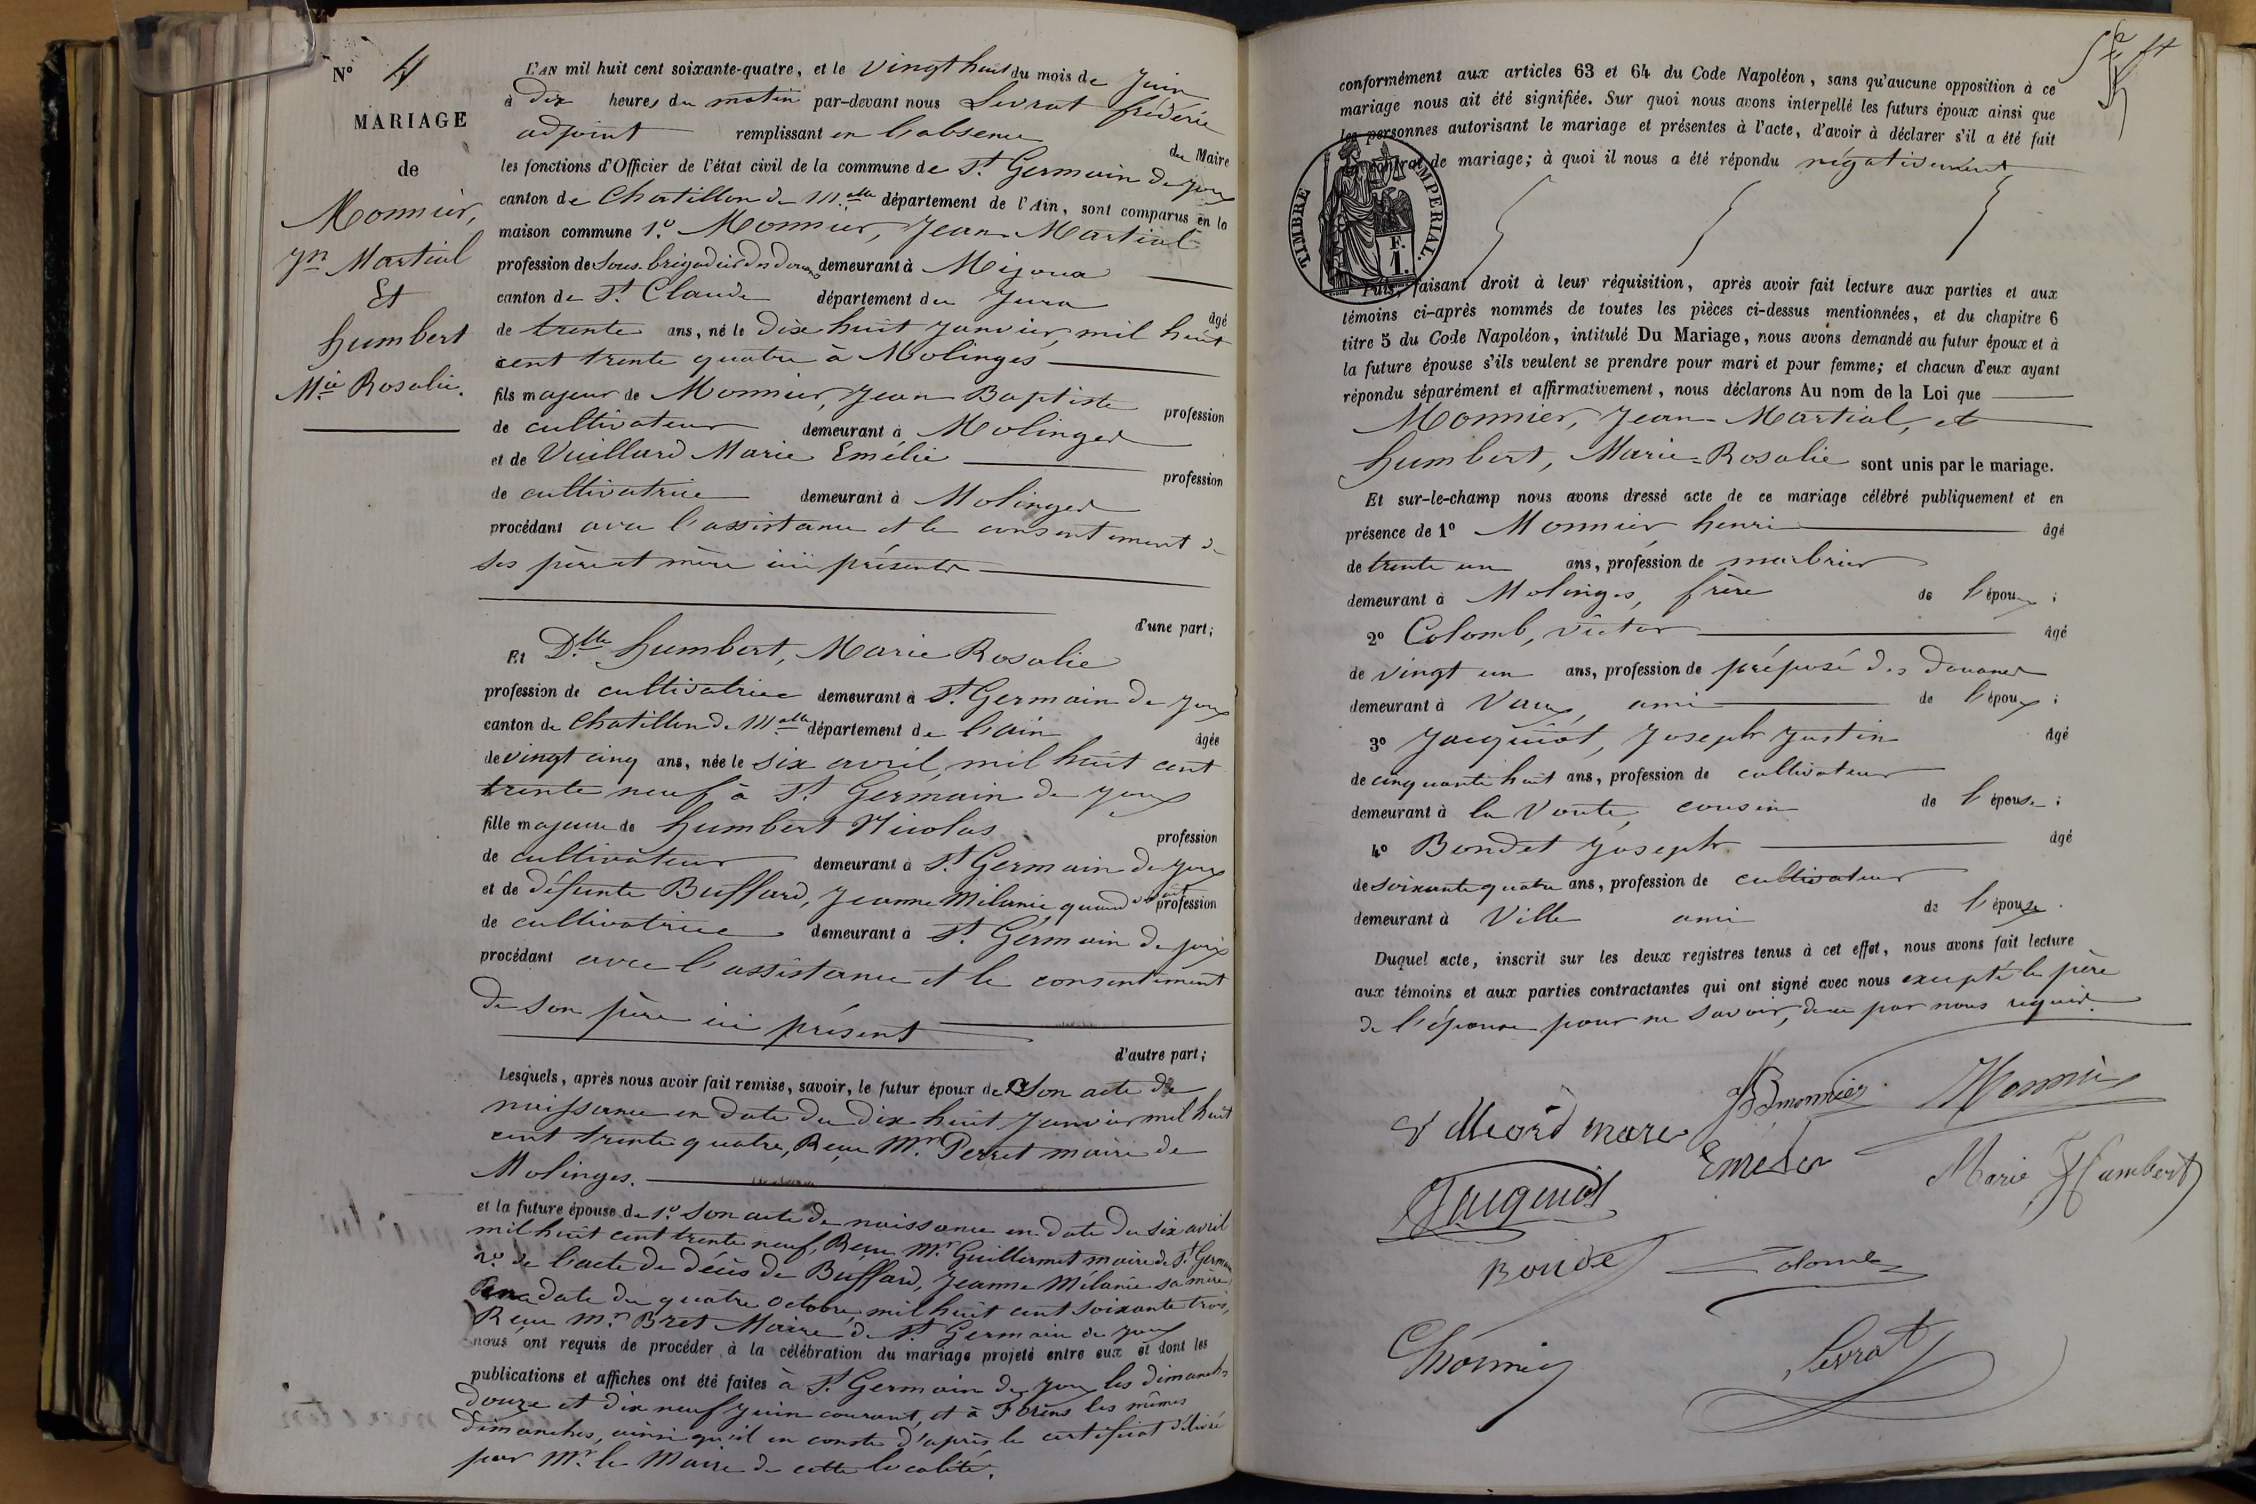 N° 4
MARIAGE
de
Monnier,
Jn Martial
Et
humbert
Mie Rosalie.
L'AN mil huit cent soixante-quatre, et le vingt huit du mois de Juin
à dix heures du matin par-devant nous Levrat frédéric
adjoint remplissant en l'absence du Maire
les fonctions d'Officier de l'état civil de la commune de St. Germain de Joux
canton de Chatillon de M.alle département de l'Ain, sont comparus en la
maison commune 1.° Monnier, Jean Martial
profession de Sous-brigadier des douanes demeurant à Mijoux
canton de St. Claude département du Jura âgé
de trente ans, né le dix huit Janvier, mil huit
cent trente quatre à Molinges
fils majeur de Monnier, Jean Baptiste profession
de cultivateur demeurant à Molinges
et de Vuillard Marie Emélie profession
de cultivatrice demeurant à Molinges
procédant avec l'assistance et le consentement de
ses père et mère ici présents
d'une part;
Et D.lle humbert, Marie Rosalie
profession de cultivatrice demeurant à St. Germain de Joux
canton de Chatillon de M.alle département de l'ain âgée
de vingt cinq ans, née le six avril, mil huit cent
trente neuf à St. Germain de Joux
fille majeure de humbert Nicolas profession
de cultivateur demeurant à St. Germain de Joux
et de défunte Buffard, Jeanne Mélanie quand vivait profession
de cultivatrice demeurant à St. Germain de Joux
procédant avec l'assistance et le consentement
de son père ici présent
d'autre part;
Lesquels, après nous avoir fait remise, savoir, le futur époux de Son acte de
naissance en date du dix huit Janvier mil huit
cent trente quatre, Reçu Mr. Perret maire de
Molinges.
et la future épouse de 1.° Son acte de naissance en date du six avril
mil huit cent trente neuf, Reçu Mr. Guillermet maire de St. Germain
2.° de l'acte de décès de Buffard, Jeanne Mélanie sa mère
en date du quatre octobre, mil huit cent soixante trois,
Reçu Mr. Bret Maire de St. Germain de Joux
nous ont requis de procéder à la célébration du mariage projeté entre eux et dont les
publications et affiches ont été faites à St. Germain de Joux les dimanches
douze et dix neuf Juin courant, et à Forens les mêmes
dimanches, ainsi qu'il en conste d'après le certificat délivré
par Mr. le Maire de cette localité.
conformément aux articles 63 et 64 du Code Napoléon, sans qu'aucune opposition à ce
mariage nous ait été signifiée. Sur quoi nous avons interpellé les futurs époux ainsi que
les personnes autorisant le mariage et présentes à l'acte, d'avoir à déclarer s'il a été fait
contrat de mariage; à quoi il nous a été répondu négativement
TIMBRE IMPERIAL.
F.
1.
Puis, faisant droit à leur réquisition, après avoir fait lecture aux parties et aux
témoins ci-après nommés de toutes les pièces ci-dessus mentionnées, et du chapitre 6
titre 5 du Code Napoléon, intitulé Du Mariage, nous avons demandé au futur époux et à
la future épouse s'ils veulent se prendre pour mari et pour femme; et chacun d'eux ayant
répondu séparément et affirmativement, nous déclarons Au nom de la Loi que
Monnier, Jean-Martial, et
humbert, Marie-Rosalie sont unis par le mariage.
Et sur-le-champ nous avons dressé acte de ce mariage célébré publiquement et en
présence de 1° Monnier henri âgé
de trente un ans, profession de marbrier
demeurant à Molinges, frère de l'époux ;
2° Colomb, victor âgé
de vingt un ans, profession de préposé des douanes
demeurant à Vaux, ami de l'époux ;
3° Jacquiot, Joseph Justin âgé
de cinquante huit ans, profession de cultivateur
demeurant à la Voute, cousin de l'épouse ;
4° Bondet Joseph âgé
de soixante quatre ans, profession de cultivateur
demeurant à Ville ami de l'épouse.
Duquel acte, inscrit sur les deux registres tenus à cet effet, nous avons fait lecture
aux témoins et aux parties contractantes qui ont signé avec nous excepté le père
de l'épouse pour ne savoir, de ce par nous requis.
JBmonnier Monnier
marie
Emeler Marie Humbert
Jaquiot
Bonde Colomb
Levrat